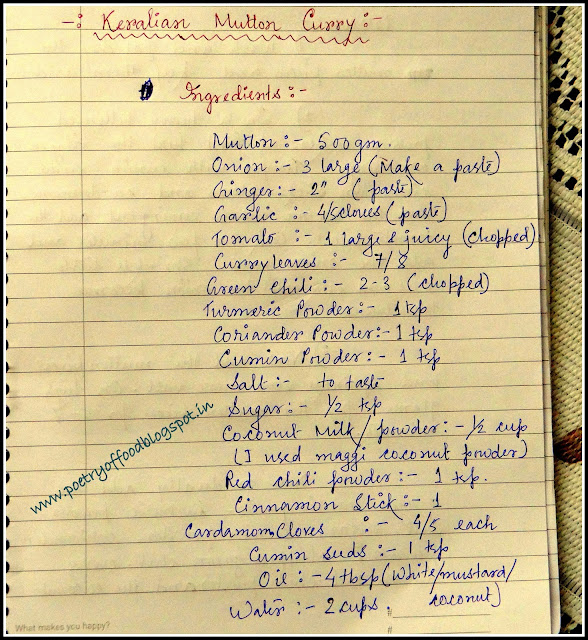 -: Keralian Mutton Curry :-
1) Ingredients :-
Mutton :- 500gm.
Onion :- 3 large (Make a paste)
Ginger :- 2" (paste)
Garlic :- 4/5cloves (paste)
Tomato :- 1 large & juicy (chopped)
Curry leaves :- 7/8
Green Chili :- 2-3 (chopped)
Turmeric Powder :- 1 tsp
Coriander Powder :- 1 tsp
Cumin Powder :- 1 tsp
Salt :- to taste
Sugar :- 1/2 tsp
Coconut Milk/powder :- 1/2 cup
(I used maggi coconut powder)
Red chili powder :- 1 tsp.
Cinnamon Stick :- 1
Cardamom, Cloves :- 4/5 each
Cumin seeds :- 1 tsp
Oil :- 4 tbsp (White/mustard/
coconut)
Water :- 2 cups.
www.poetryoffoodblogspot.in
What makes you happy?